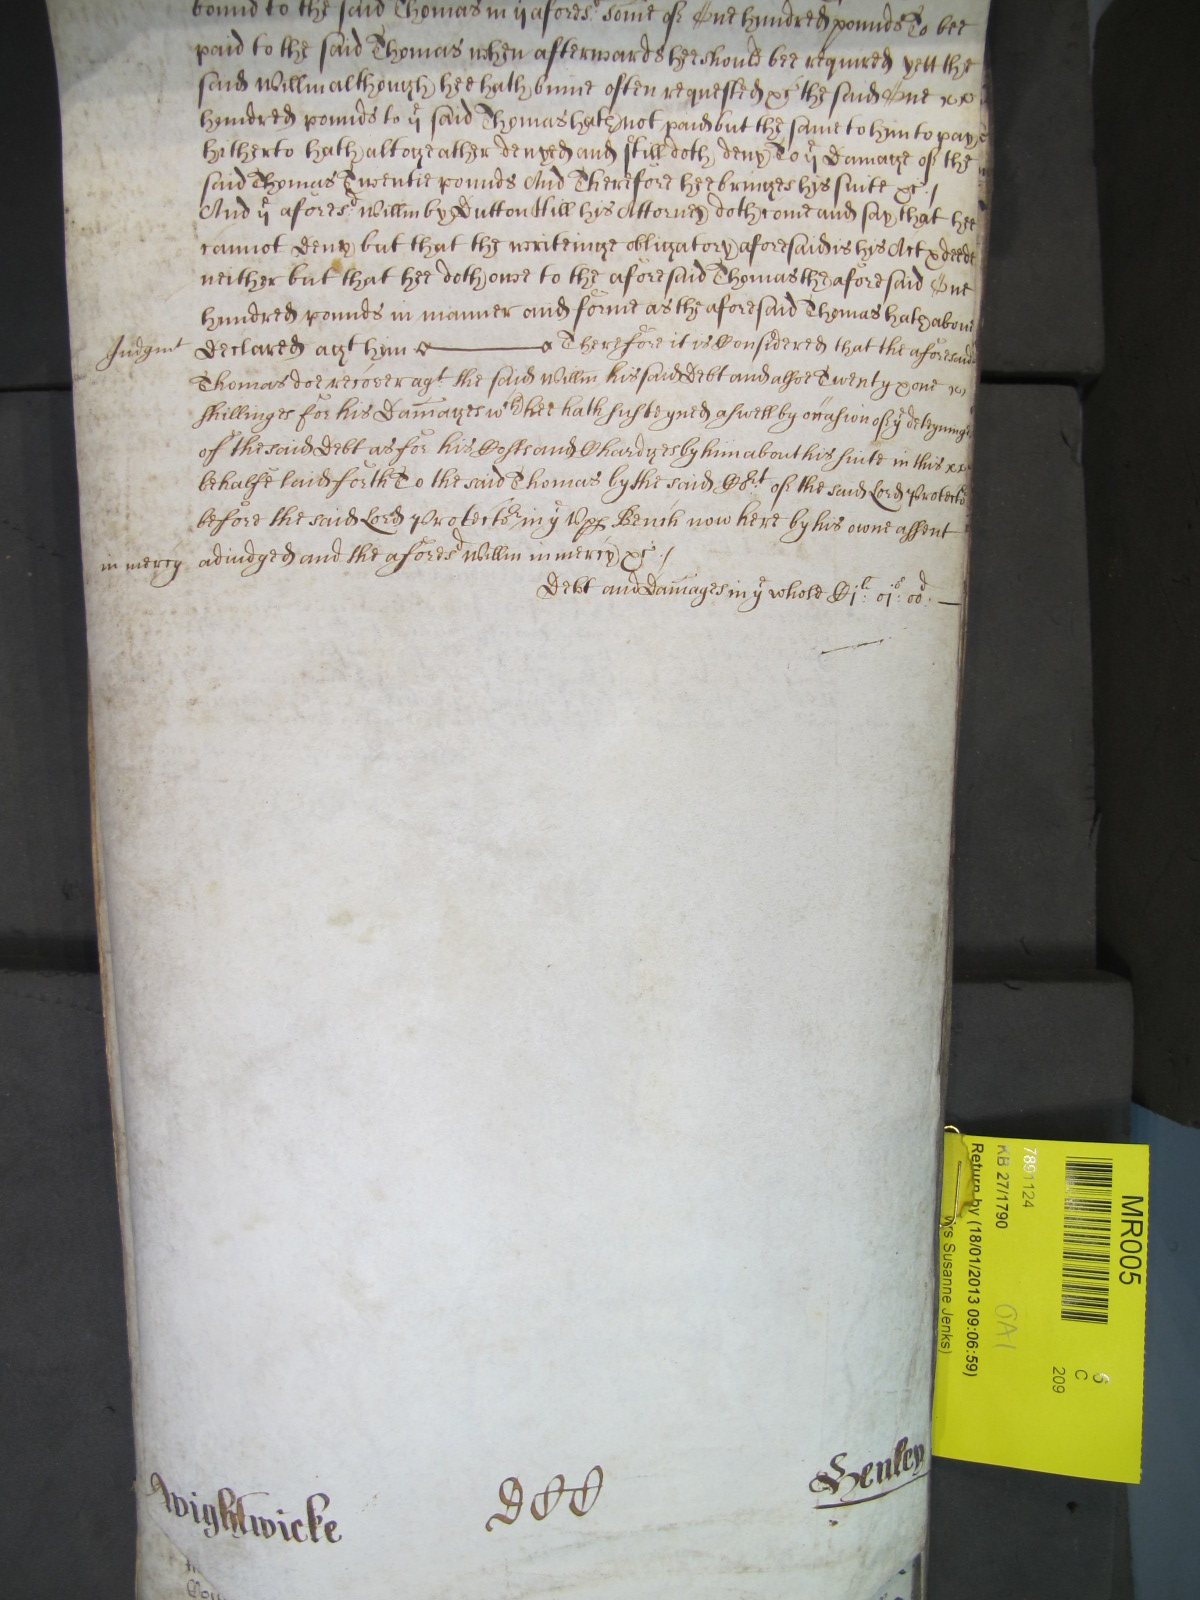 bound to the said Thomas in ye aforesd some of One hundred pounds To bee
paid to the said Thomas when afterwards hee should bee required yett the
said Willm although hee hath binne often requested &c the said One
hundred pounds to ye said Thomas hath not paid but the same to him to pay
hitherto hath altogeather denyed and still doth deny To ye Damage of the
said Thomas Twentie pounds And Therefore hee bringes his suite &c /
And ye aforesd Willm by Dutton Hill his Attorney doth come and say that hee
cannot deny but that the writeinge obligatory aforesaid is his Act & deede
neither but that hee doth owe to the aforesaid Thomas the aforesaid One
hundred pounds in manner and forme as the aforesaid Thomas hath above
Judgmt Declared agt him Therefore it is Considered that the aforesaid
Thomas doe recover agt the said Willm his said Debt and allsoe Twenty & one
shillinges for his Damages wch hee hath susteyned aswell by occasion of ye deteyninge
of the said Debt as for his Costs and Chardges by him about his suite in this
behalfe laid forth To the said Thomas by the said Cort of the said Lord Protector
before the said Lord Protector in ye Upp Bench now here by his owne assent
in mercy adiudged and the aforesd Willm in mercy &c /
Debt and Damages in ye whole Cjl: 01s: 00d
Wightwicke
Henley
MR005
7891124
KB 27/1790
Return by (18/01/2013 09:06:59)
Mrs Susanne Jenks)
6
C
209